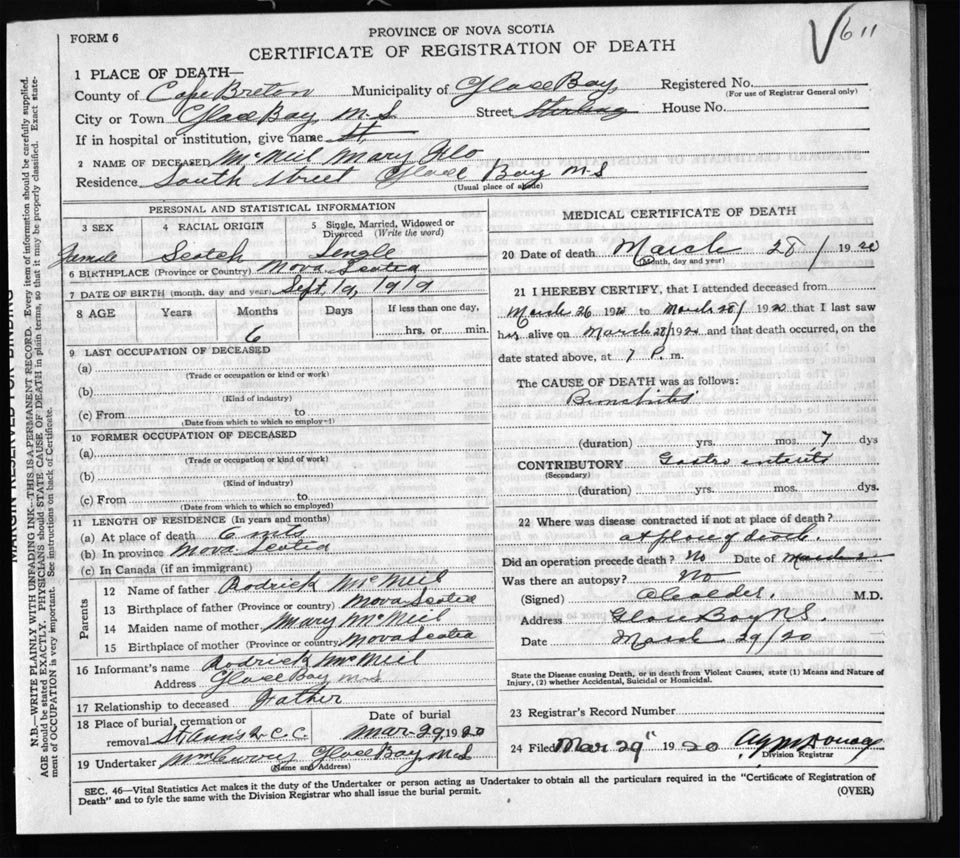 FORM 6
PROVINCE OF NOVA SCOTIA
611
CERTIFICATE OF REGISTRATION OF DEATH
1 PLACE OF DEATH—
County of Cape Breton Municipality of Glace Bay Registered No.
(For use of Registrar General only)
City or Town Glace Bay N.S Street Sterling House No.
If in hospital or institution, give name St,
2 NAME OF DECEASED McNeil Mary Flo
Residence South Street Glace Bay N-S
(Usual place of abode)
PERSONAL AND STATISTICAL INFORMATION
3 SEX 4 RACIAL ORIGIN 5 Single, Married, Widowed or Divorced (Write the word)
Female Scotch Single
6 BIRTHPLACE (Province or Country) Nova Scotia
7 DATE OF BIRTH (month, day and year) Sept 19, 1919
8 AGE Years Months Days If less than one day,
6 hrs. or min.
9 LAST OCCUPATION OF DECEASED
(a)
(Trade or occupation or kind or work)
(b)
(Kind of industry)
(c) From to
(Date from which to which so employed)
10 FORMER OCCUPATION OF DECEASED
(a)
(Trade or occupation or kind of work)
(b)
(Kind of industry)
(c) From to
(Date from which to which so employed)
11 LENGTH OF RESIDENCE (In years and months)
(a) At place of death 6 mts
(b) In province Nova Scotia
(c) In Canada (if an immigrant)
Parents
12 Name of father Rodrick McNeil
13 Birthplace of father (Province or country) Nova Scotia
14 Maiden name of mother Mary McNeil
15 Birthplace of mother (Province or country) Nova Scotia
16 Informant's name Rodrick McNeil
Address Glace Bay
17 Relationship to deceased Father
18 Place of burial, cremation or removal St Anns C.C Date of burial Mar 29, 1920
19 Undertaker Glace Bay, N.S
(Name and Address)
MEDICAL CERTIFICATE OF DEATH
20 Date of death March 28/ 1920
(Month, day and year)
21 I HEREBY CERTIFY, that I attended deceased from
March 26 1920 to March 28/ 1920 that I last saw
her alive on March 28/1920 and that death occurred, on the
date stated above, at 7 P. m.
The CAUSE OF DEATH was as follows:
Bronchitis
(duration) yrs. mos. 7 dys
CONTRIBUTORY Gastro enteritis
(Secondary)
(duration) yrs. mos. dys.
22 Where was disease contracted if not at place of death?
at place of death.
Did an operation precede death? No Date of
Was there an autopsy? No
(Signed) M.D.
Address Glace Bay N.S.
Date March 29/20
State the Disease causing Death, or in death from Violent Causes, state (1) Means and Nature of Injury, (2) whether Accidental, Suicidal or Homicidal.
23 Registrar's Record Number
24 Filed Mar 29" 1920
Division Registrar
SEC. 46—Vital Statistics Act makes it the duty of the Undertaker or person acting as Undertaker to obtain all the particulars required in the "Certificate of Registration of
Death" and to fyle the same with the Division Registrar who shall issue the burial permit. (OVER)
MARGIN RESERVED FOR BINDING
N.B.—WRITE PLAINLY WITH UNFADING INK.—THIS IS A PERMANENT RECORD. Every item of information should be carefully supplied.
AGE should be stated EXACTLY. PHYSICIANS should STATE CAUSE OF DEATH in plain terms, so that it may be properly classified. Exact statement
of OCCUPATION is very important. See instructions on back of Certificate.